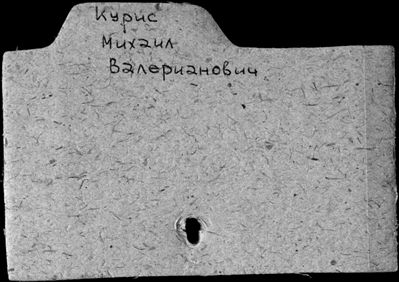 Курис
Михаил
Валерианович